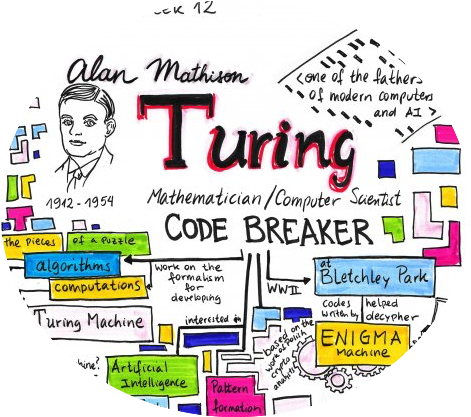 12
Alan Mathison
Turing
<one of the fathers
of modern computers
and AI >
1912 - 1954
Mathematician/Computer Scientist
CODE BREAKER
the pieces of a puzzle
algorithms
computations
work on the
formalism
for
developing
WWII
at
Bletchley Park
codes
written by
helped
decypher
ENIGMA
MACHINE
Turing Machine
interested in
based on the
work of Polish
crypto
analysts
Artificial
Intelligence
Pattern
formation